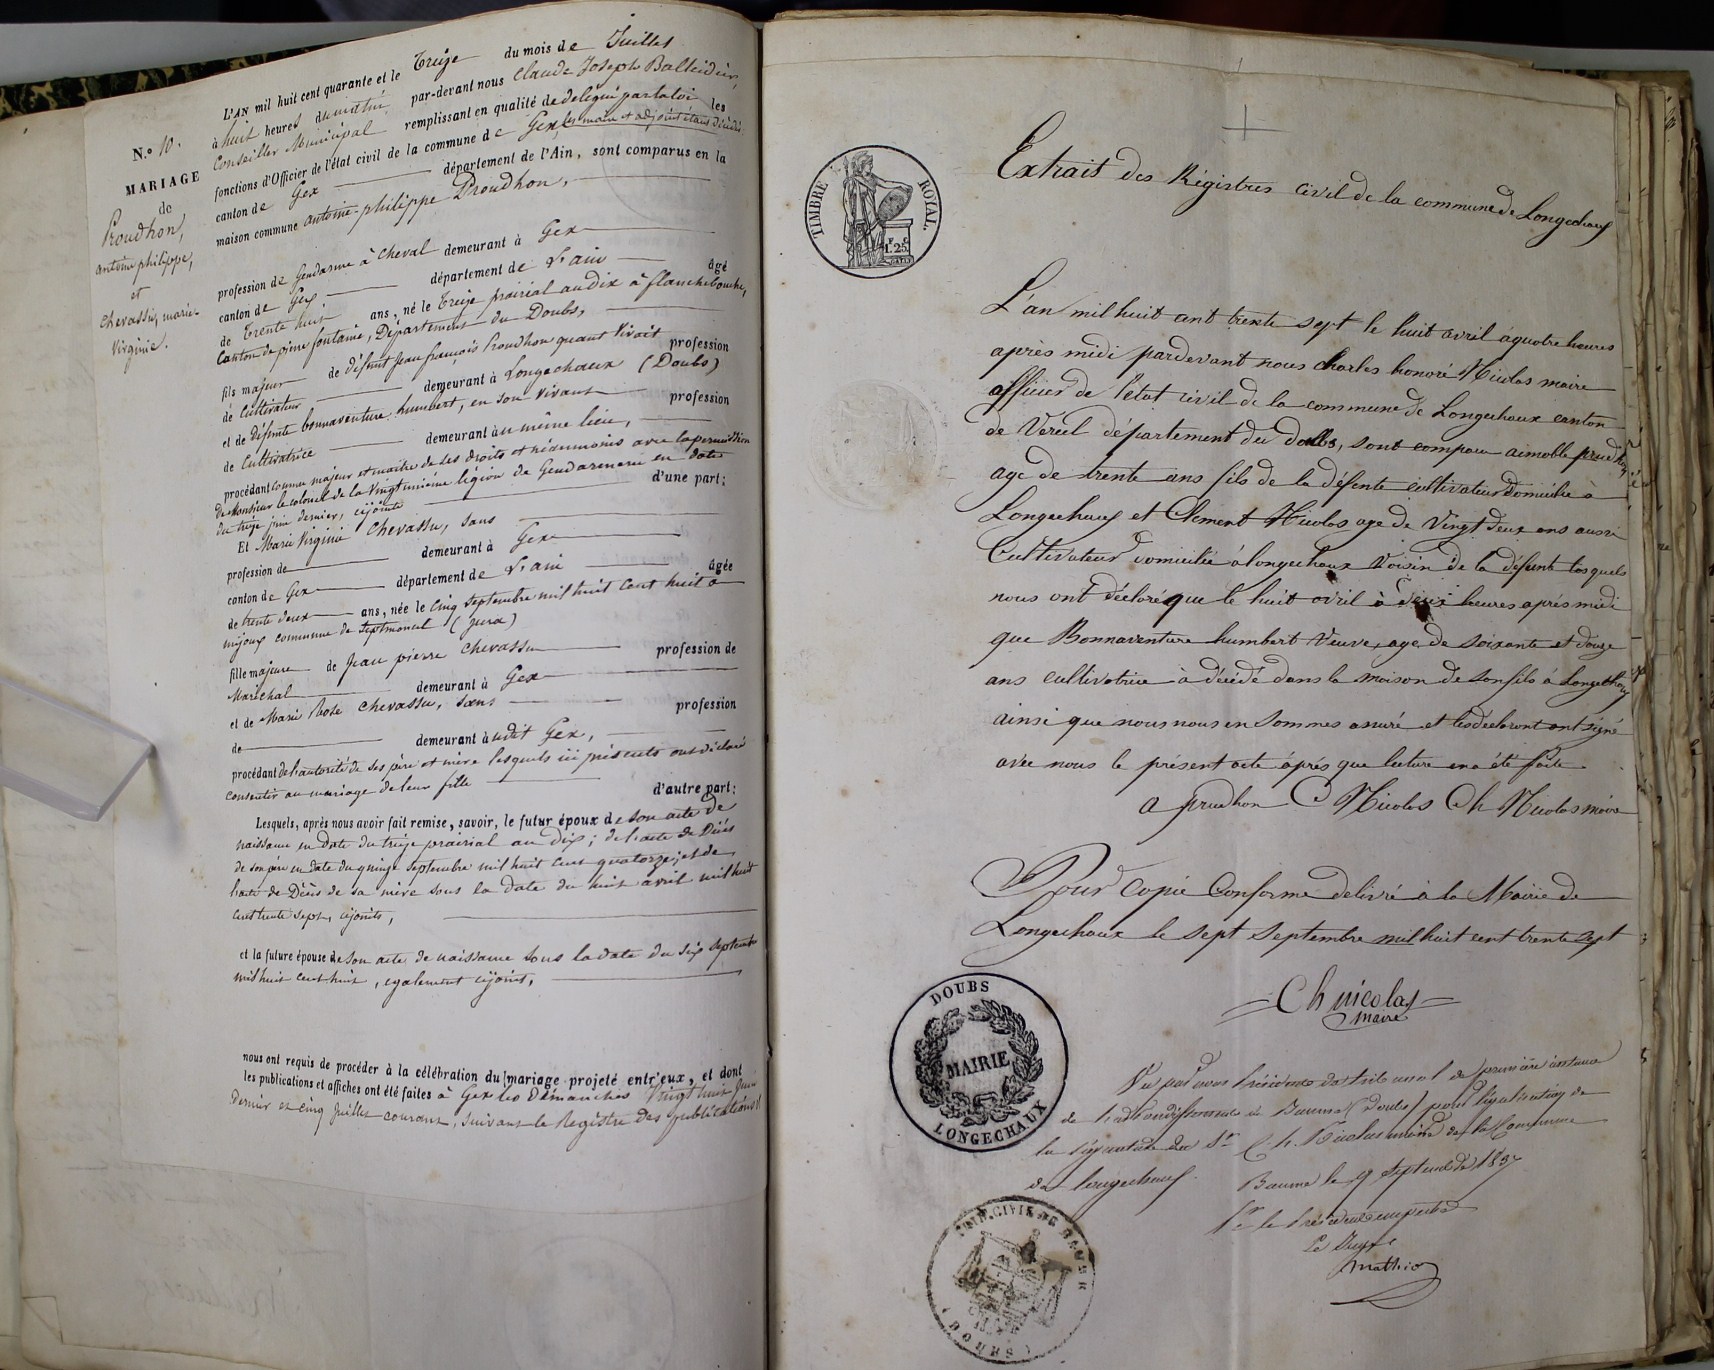 N.o 10.
MARIAGE
de
Proudhon,
antoine philippe,
et
Chevassu, marie-
Virginie.
L'AN mil huit cent quarante et le Treize du mois de Juillet
à huit heures du matin par-devant nous Claude Joseph
Conseiller Municipal remplissant en qualité de délégué par la loi les
fonctions d'Officier de l'état civil de la commune de Gex, les maire et adjoint étant
canton de Gex département de l'Ain, sont comparus en la
maison commune antoine-philippe Proudhon,
profession de Gendarme à cheval demeurant à Gex
canton de Gex département de L'ain âgé
de Trente huit ans, né le Treize prairial an dix à flanchebouche,
Canton de pierre fontaine, Département du Doubs,
fils majeur de défunt Jean françois Proudhon quant vivait profession
de Cultivateur demeurant à Longechaux (Doubs)
et de Défunte bonnaventure humbert, en son vivant profession
de Cultivatrice demeurant à u même lieu,
procédant comme majeur et maitre de ses droits et néanmoins avec la permission
de Monsieur le colonel de la Vingt unieme légion de Gendarmerie en date
du treize juin dernier, cijointe d'une part;
Et Marie Virginie Chevassu, sans
profession de demeurant à Gex
canton de Gex département de L'ain âgée
de trente deux ans, née le cinq septembre mil huit cent huit à
mijoux commune de Septmoncel (Jura)
fille majeure de Jean pierre Chevassu profession de
Maréchal demeurant à Gex
et de Marie Rose Chevassu, sans profession
de demeurant à udit Gex,
procédant de l'autorité de ses père et mère lesquels ici présents ont déclaré
consentir au mariage de leur fille d'autre part;
Lesquels, après nous avoir fait remise, savoir, le futur époux de son acte de
naissance en date du treize prairial an dix; de l'acte de Décès
de son père en date du quinze septembre mil huit cent quatorze; et de
l'acte de Décès de sa mère sous la date du huit avril mil huit
cent trente sept, cijoints,
et la future épouse de son acte de naissance sous la date du six septembre
mil huit cent huit, egalement cijoint,
nous ont requis de procéder à la célébration du mariage projeté entr'eux, et dont
les publications et affiches ont été faites à Gex les Dimanches Vingt huit Juin
Dernier et cinq Juillet courant, suivant le Registre des publications
TIMBRE ROYAL.
1.25
Extrait des Régistres civil de la commune de Longechaux
L'an mil huit cent trente sept le huit avril à quatre heures
après midi pardevant nous charles honoré Nicolas maire
officier de l'état civil de la commune de Longechaux canton
de Vercel département du doubs, sont comparu aimable prudhon
age de trente ans fils de la défente cultivateur domicilié à
Longechaux et Clement Nicolas age de Vingt deux ans aussi
Cultivateur domicilié à longechaux Voisin de la défunte lesquels
nous ont déclaré que le huit avril à deux heures après midi
que Bonnaventure humbert Veuve, age de soixante et douze
ans cultivatrice à décédé dans la maison de son fils à Longechaux
ainsi que nous nous en sommes assuré et les déclarant ont signé
avec nous le présent acte après que lecture en a été faite
a prudhon C Nicolas Ch Nicolas maire
Pour copie Conforme delivré à la Mairie de
Longechaux le sept septembre mil huit cent trente sept
Ch nicolas
maire
DOUBS
MAIRIE
LONGECHAUX
Vu par nous Président du tribunal de première instance
de l'arrondissement de Baume (Doubs) pour légalisation de
la signature du Sr Ch. Nicolas maire de la Commune
de Longechaux. Baume le 9 septembre 1837
Pr le Président empêché
Le Juge
Mathiot
TRIB. CIVIL DE BAUME
(DOUBS)